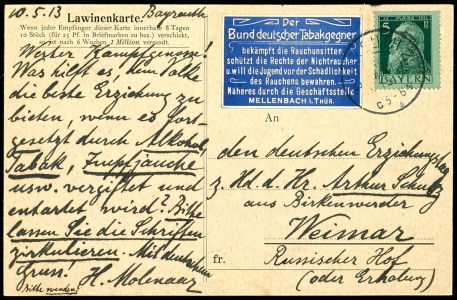 10.5.13 Bayreuth
Lawinenkarte.
Wenn jeder Empfänger dieser Karte innerhalb 8 Tagen
10 Stück (für 25 Pf. in Briefmarken zu bez.) verschickt,
so ist nach 6 Wochen 1 Million versandt.
Werter Kampfgenosse!
Was hilft es, dem Volke
die beste Erziehung zu
bieten, wenn es fort-
gesetzt durch Alkohol,
Tabak, Impfjauche
usw. vergiftet und
entartet wird? Bitte
lassen Sie die Schriften
zirkulieren. Mit deutschem
Gruss! H. Molenaar
Bitte wenden!
Der
Bund deutscher Tabakgegner
bekämpft die Rauchunsitten,
schützt die Rechte der Nichtraucher
u. will die Jugend vor der Schädlichkeit
des Rauchens bewahren.
Näheres durch die Geschäftsstelle
MELLENBACH i. THÜR.
5
BAYERN
An
den deutschen Erziehungstag
z. Hd. d. Hr. Arthur Schulz
aus Birkenwerder
Weimar
fr. Russischer Hof
(oder Erholung)